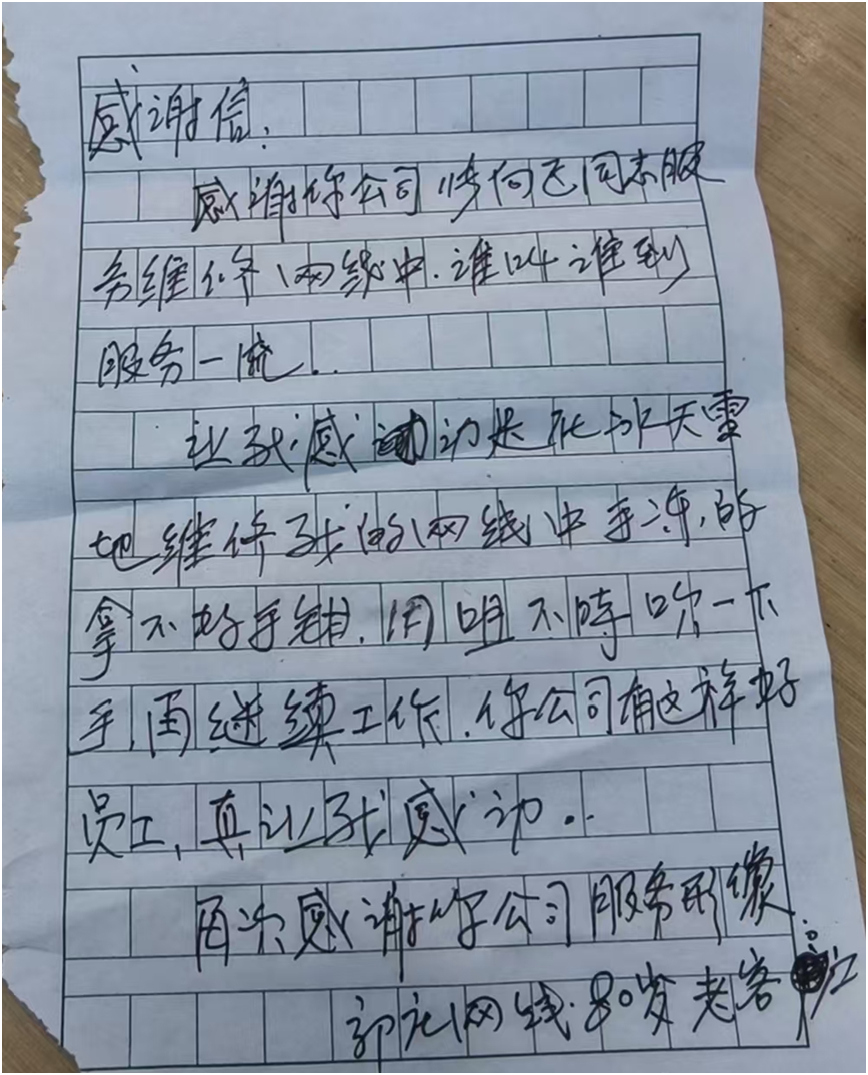 感谢信.
感谢你公司向飞同志服
务维修网线中.谁叫谁到
服务一流..
让我感动是在冰天雪
地维修我的网线中手冻的
拿不好手钳.用咀不时吹一下
手,再继续工作.你公司有这样好
员工,真让我感动..
再次感谢你公司服务形像
网线.80岁老客